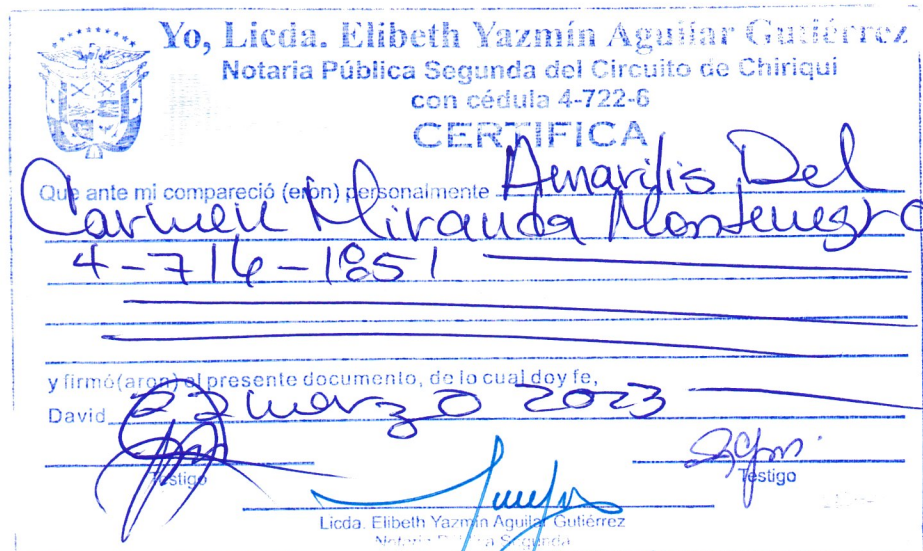 Yo, Licda. Elibeth Yazmín Aguilar Gutiérrez
Notaria Pública Segunda del Circuito de Chiriqui
con cédula 4-722-6
CERTIFICA
Que ante mi compareció (eron) personalmente Amarilis Del
Carmen Miranda Montenegro
4-716-1851
y firmó(aron) el presente documento, de lo cual doy fe,
David 22 marzo 2023
Testigo
Testigo
Licda. Elibeth Yazmín Aguilar Gutiérrez
Notaria Pública Segunda